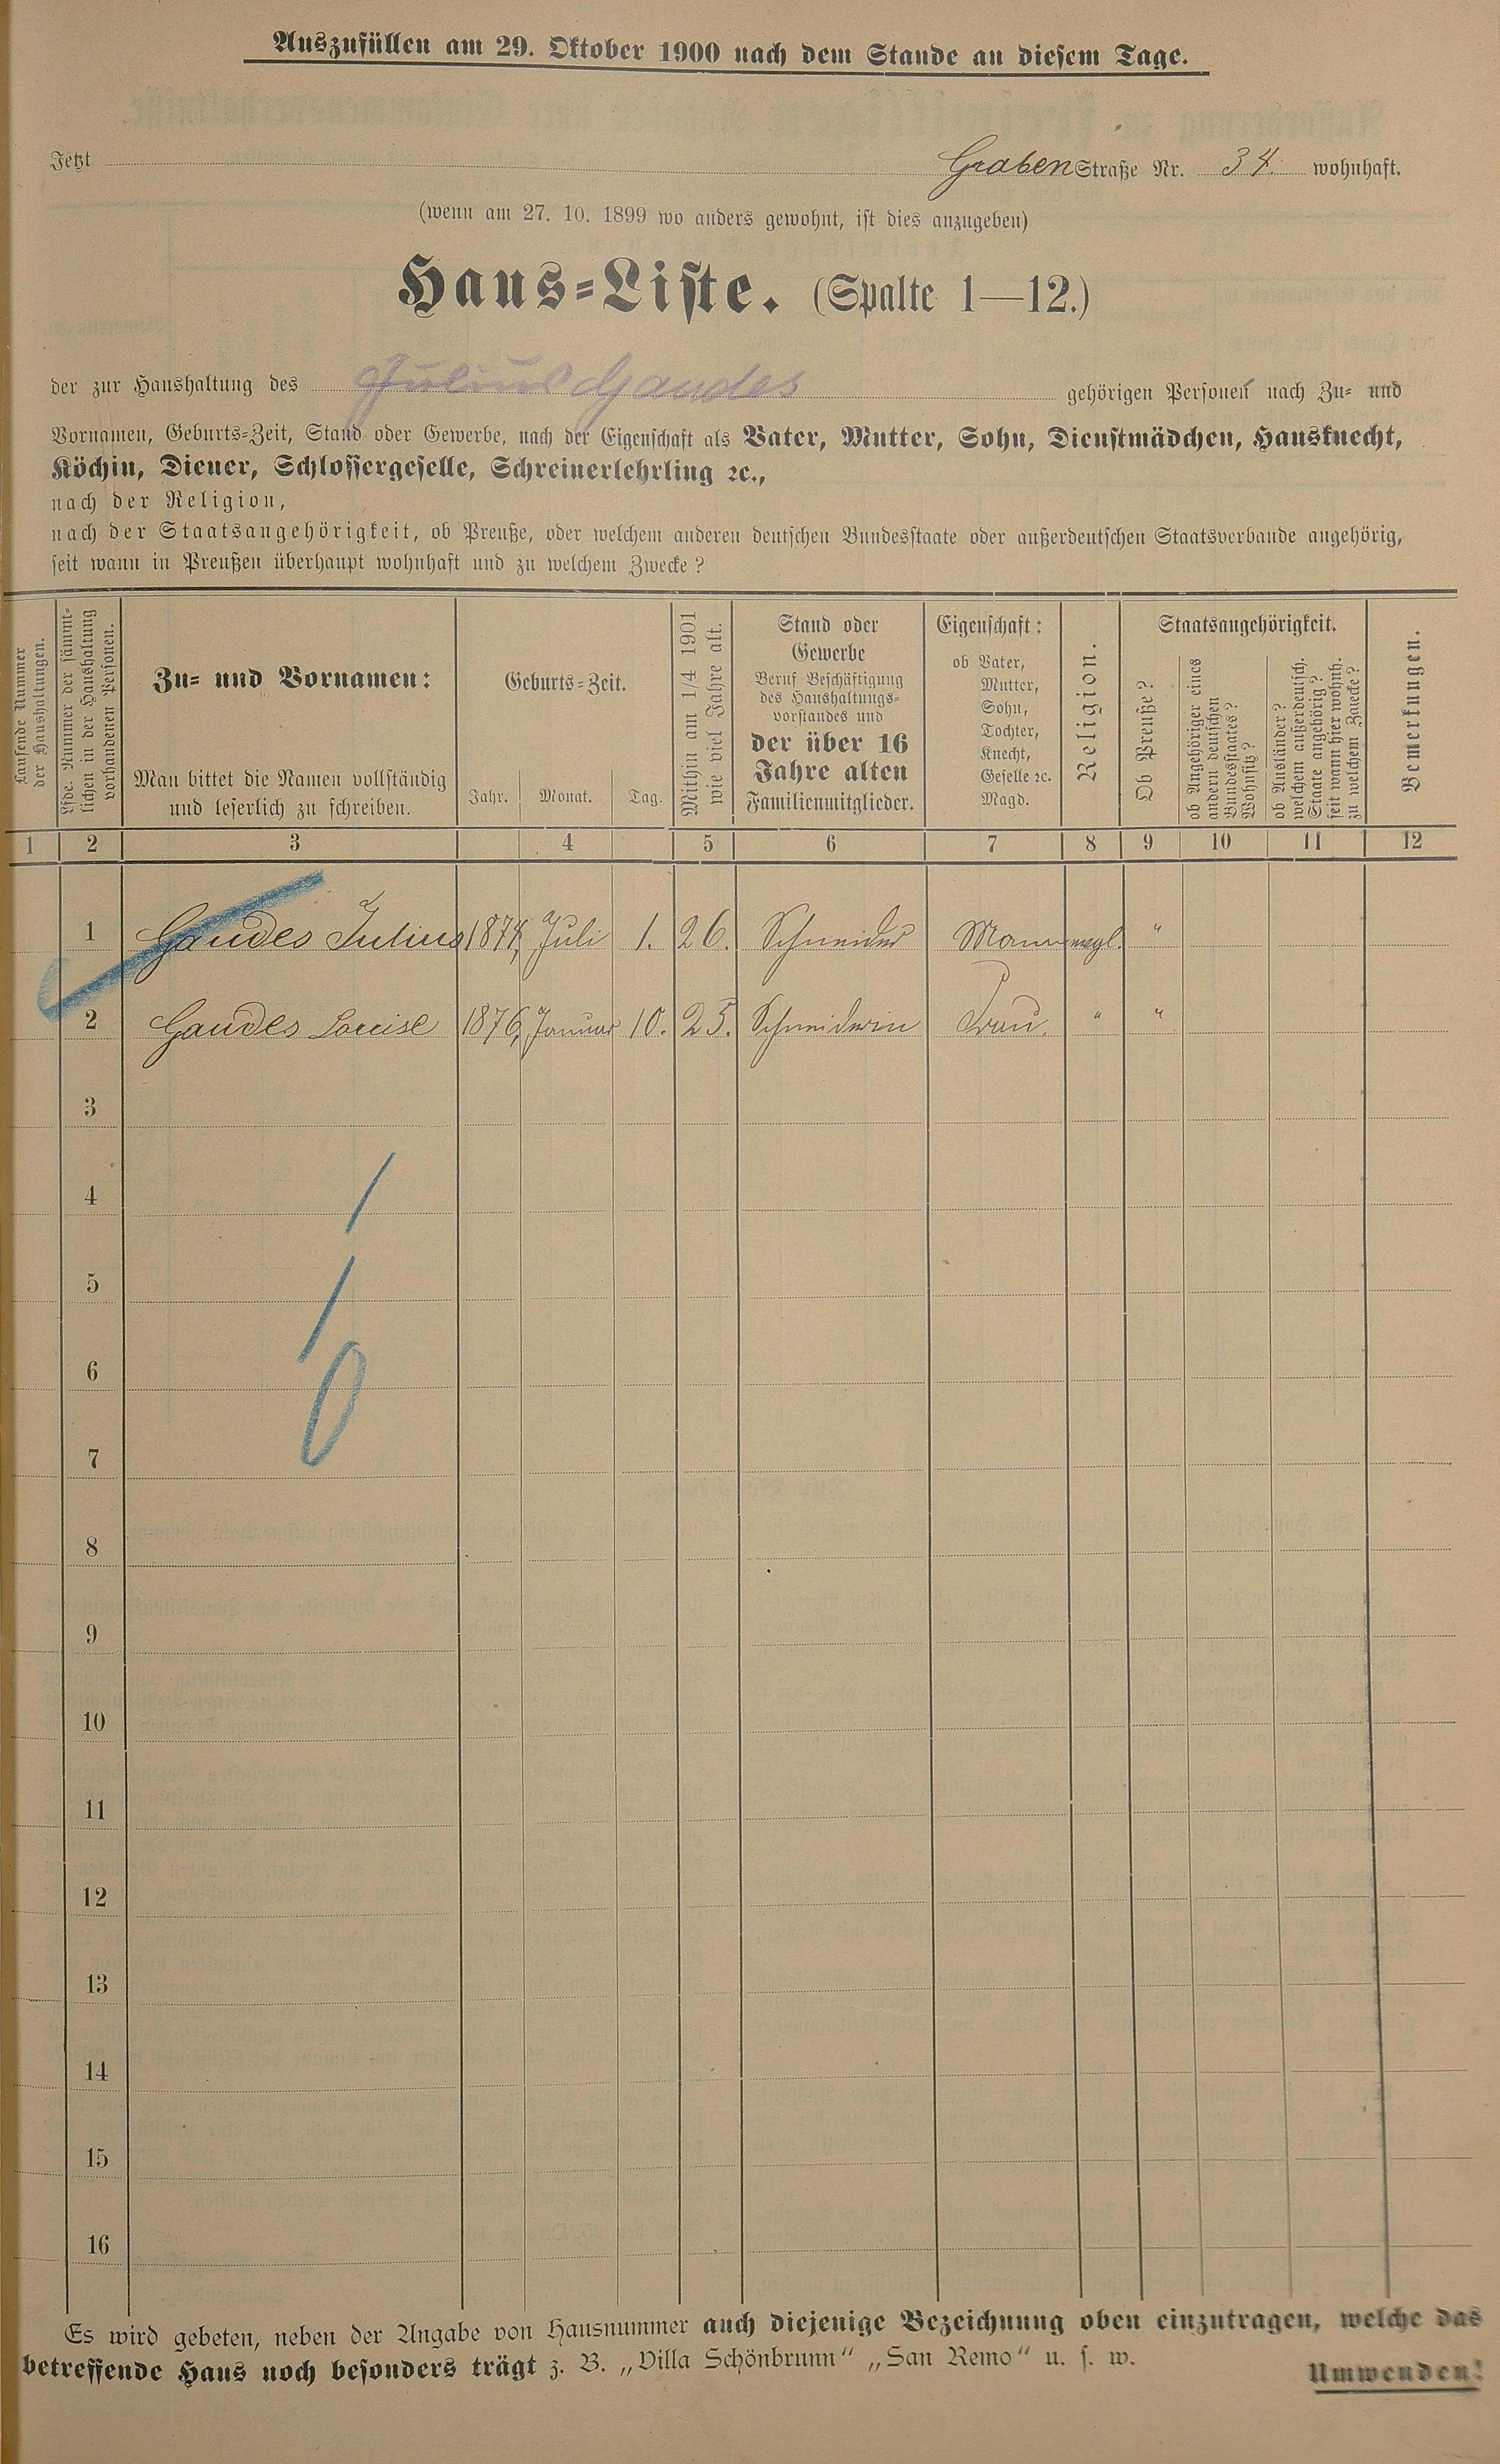 Auszufüllen am 29. Oktober 1900 nach dem Stande an diesem Tage.
Jetzt Graben Straße Nr. 34. wohnhaft.
(wenn am 27. 10. 1899 wo anders gewohnt, ist dies anzugeben)
Haus-Liste. (Spalte 1—12.)
der zur Haushaltung des Julius Gaudes gehörigen Personen nach Zu- und
Vornamen, Geburts-Zeit, Stand oder Gewerbe, nach der Eigenschaft als Vater, Mutter, Sohn, Dienstmädchen, Hausknecht,
Köchin, Diener, Schlossergeselle, Schreinerlehrling ꝛc.,
nach der Religion,
nach der Staatsangehörigkeit, ob Preuße, oder welchem anderen deutschen Bundesstaate oder außerdeutschen Staatsverbande angehörig,
seit wann in Preußen überhaupt wohnhaft und zu welchem Zwecke?
Laufende Nummer
der Haushaltungen.
Lfde. Nummer der sämmt-
lichen in der Haushaltung
vorhandenen Personen.
Zu- und Vornamen:
Man bittet die Namen vollständig
und leserlich zu schreiben.
Geburts-Zeit.
Jahr. Monat. Tag.
Mithin am 1/4 1901
wie viel Jahre alt.
Stand oder
Gewerbe
Beruf Beschäftigung
des Haushaltungs-
vorstandes und
der über 16
Jahre alten
Familienmitglieder.
Eigenschaft:
ob Vater,
Mutter,
Sohn,
Tochter,
Knecht,
Geselle ꝛc.
Magd.
Religion.
Staatsangehörigkeit.
Ob Preuße?
ob Angehöriger eines
andern deutschen
Bundesstaates?
Wohnsitz?
ob Ausländer?
welchem außerdeutsch.
Staate angehörig?
seit wann hier wohnh.
zu welchem Zwecke?
Bemerkungen.
1 2 3 4 5 6 7 8 9 10 11 12
1 Gaudes Julius 1874, Juli 1. 26. Schneider Mann evgl. "
2 Gaudes Louise 1876, Januar 10. 25. Schneiderin Frau. " "
3
4
5
6
7
8
9
10
11
12
13
14
15
16
Es wird gebeten, neben der Angabe von Hausnummer auch diejenige Bezeichnung oben einzutragen, welche das
betreffende Haus noch besonders trägt z. B. „Villa Schönbrunn“ „San Remo“ u. s. w.
Umwenden!